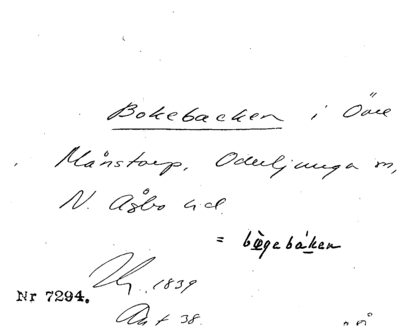 Bokebacken i Övre
Månstorp, Oderljunga sn,
N. Åsbo hd.
= bøgebáken
1839
Nr 7294.
Ant 38